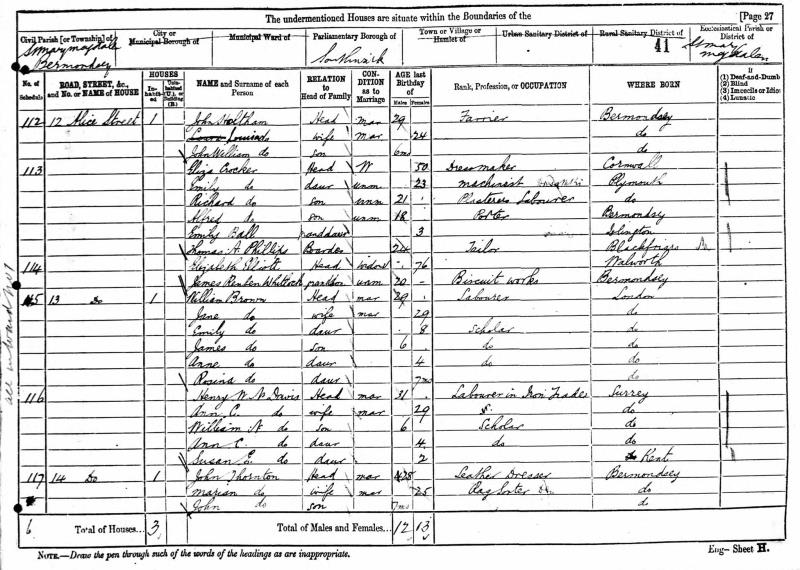 The undermentioned Houses are situate within the Boundaries of the [Page 27
Civil Parish [or Township] of City or Municipal Borough of Municipal Ward of Parliamentary Borough of Town or Village or Hamlet of Urban Sanitary District of Rural Sanitary District of Ecclesiastical Parish or District of
St Mary Magdalen Bermondsey Southwark 41 St Mary Magdalen
No. of Schedule ROAD, STREET, &c., and No. or NAME of HOUSE HOUSES Inhabited Uninhabited (U.), or Building (B.) NAME and Surname of each Person RELATION to Head of Family CONDITION as to Marriage AGE last Birthday of Males Females Rank, Profession, or OCCUPATION WHERE BORN If (1) Deaf-and-Dumb (2) Blind (3) Imbecile or Idiot (4) Lunatic
112 12 Alice Street 1 John Head mar 29 Farrier Bermondsey
Louisa do wife mar 24 do
John William do son 6 mo do
113 Eliza Crocker Head W 50 Dressmaker Cornwall
Emily do daur unm 23 machinist Plymouth
Richard do son unm 21 Plasterers Labourer do
Alfred do son unm 18 Porter Bermondsey
Emily Ball granddaur 3 Islington
Thomas A Phillips Boarder 24 Tailor Blackfriars
114 Elizabeth Elliott Head widow 76 Walworth
James Reuben Whitlock grandson unm 20 Biscuit works Bermondsey
115 13 Do 1 William Brown Head mar 29 Labourer London
Jane do wife mar 29 do
Emily do daur 8 Scholar do
James do son 6 do do
Anne do daur 4 do do
Rosina do daur 7 mo do
116 Henry W N Davis Head mar 31 Labourer in Iron Trades Surrey
Ann C. do wife mar 29 do
William N do son 6 Scholar do
Ann C. do daur 4 do do
Susan E. do daur 2 Kent
117 14 Do 1 John Thornton Head mar 28 Leather Dresser Bermondsey
Marian do wife mar 25 Rag Sorter do
John do son 7 mo do
6 Total of Houses... 3 Total of Males and Females... 12 13
NOTE.—Draw the pen through such of the words of the headings as are inappropriate. Eng—Sheet H.